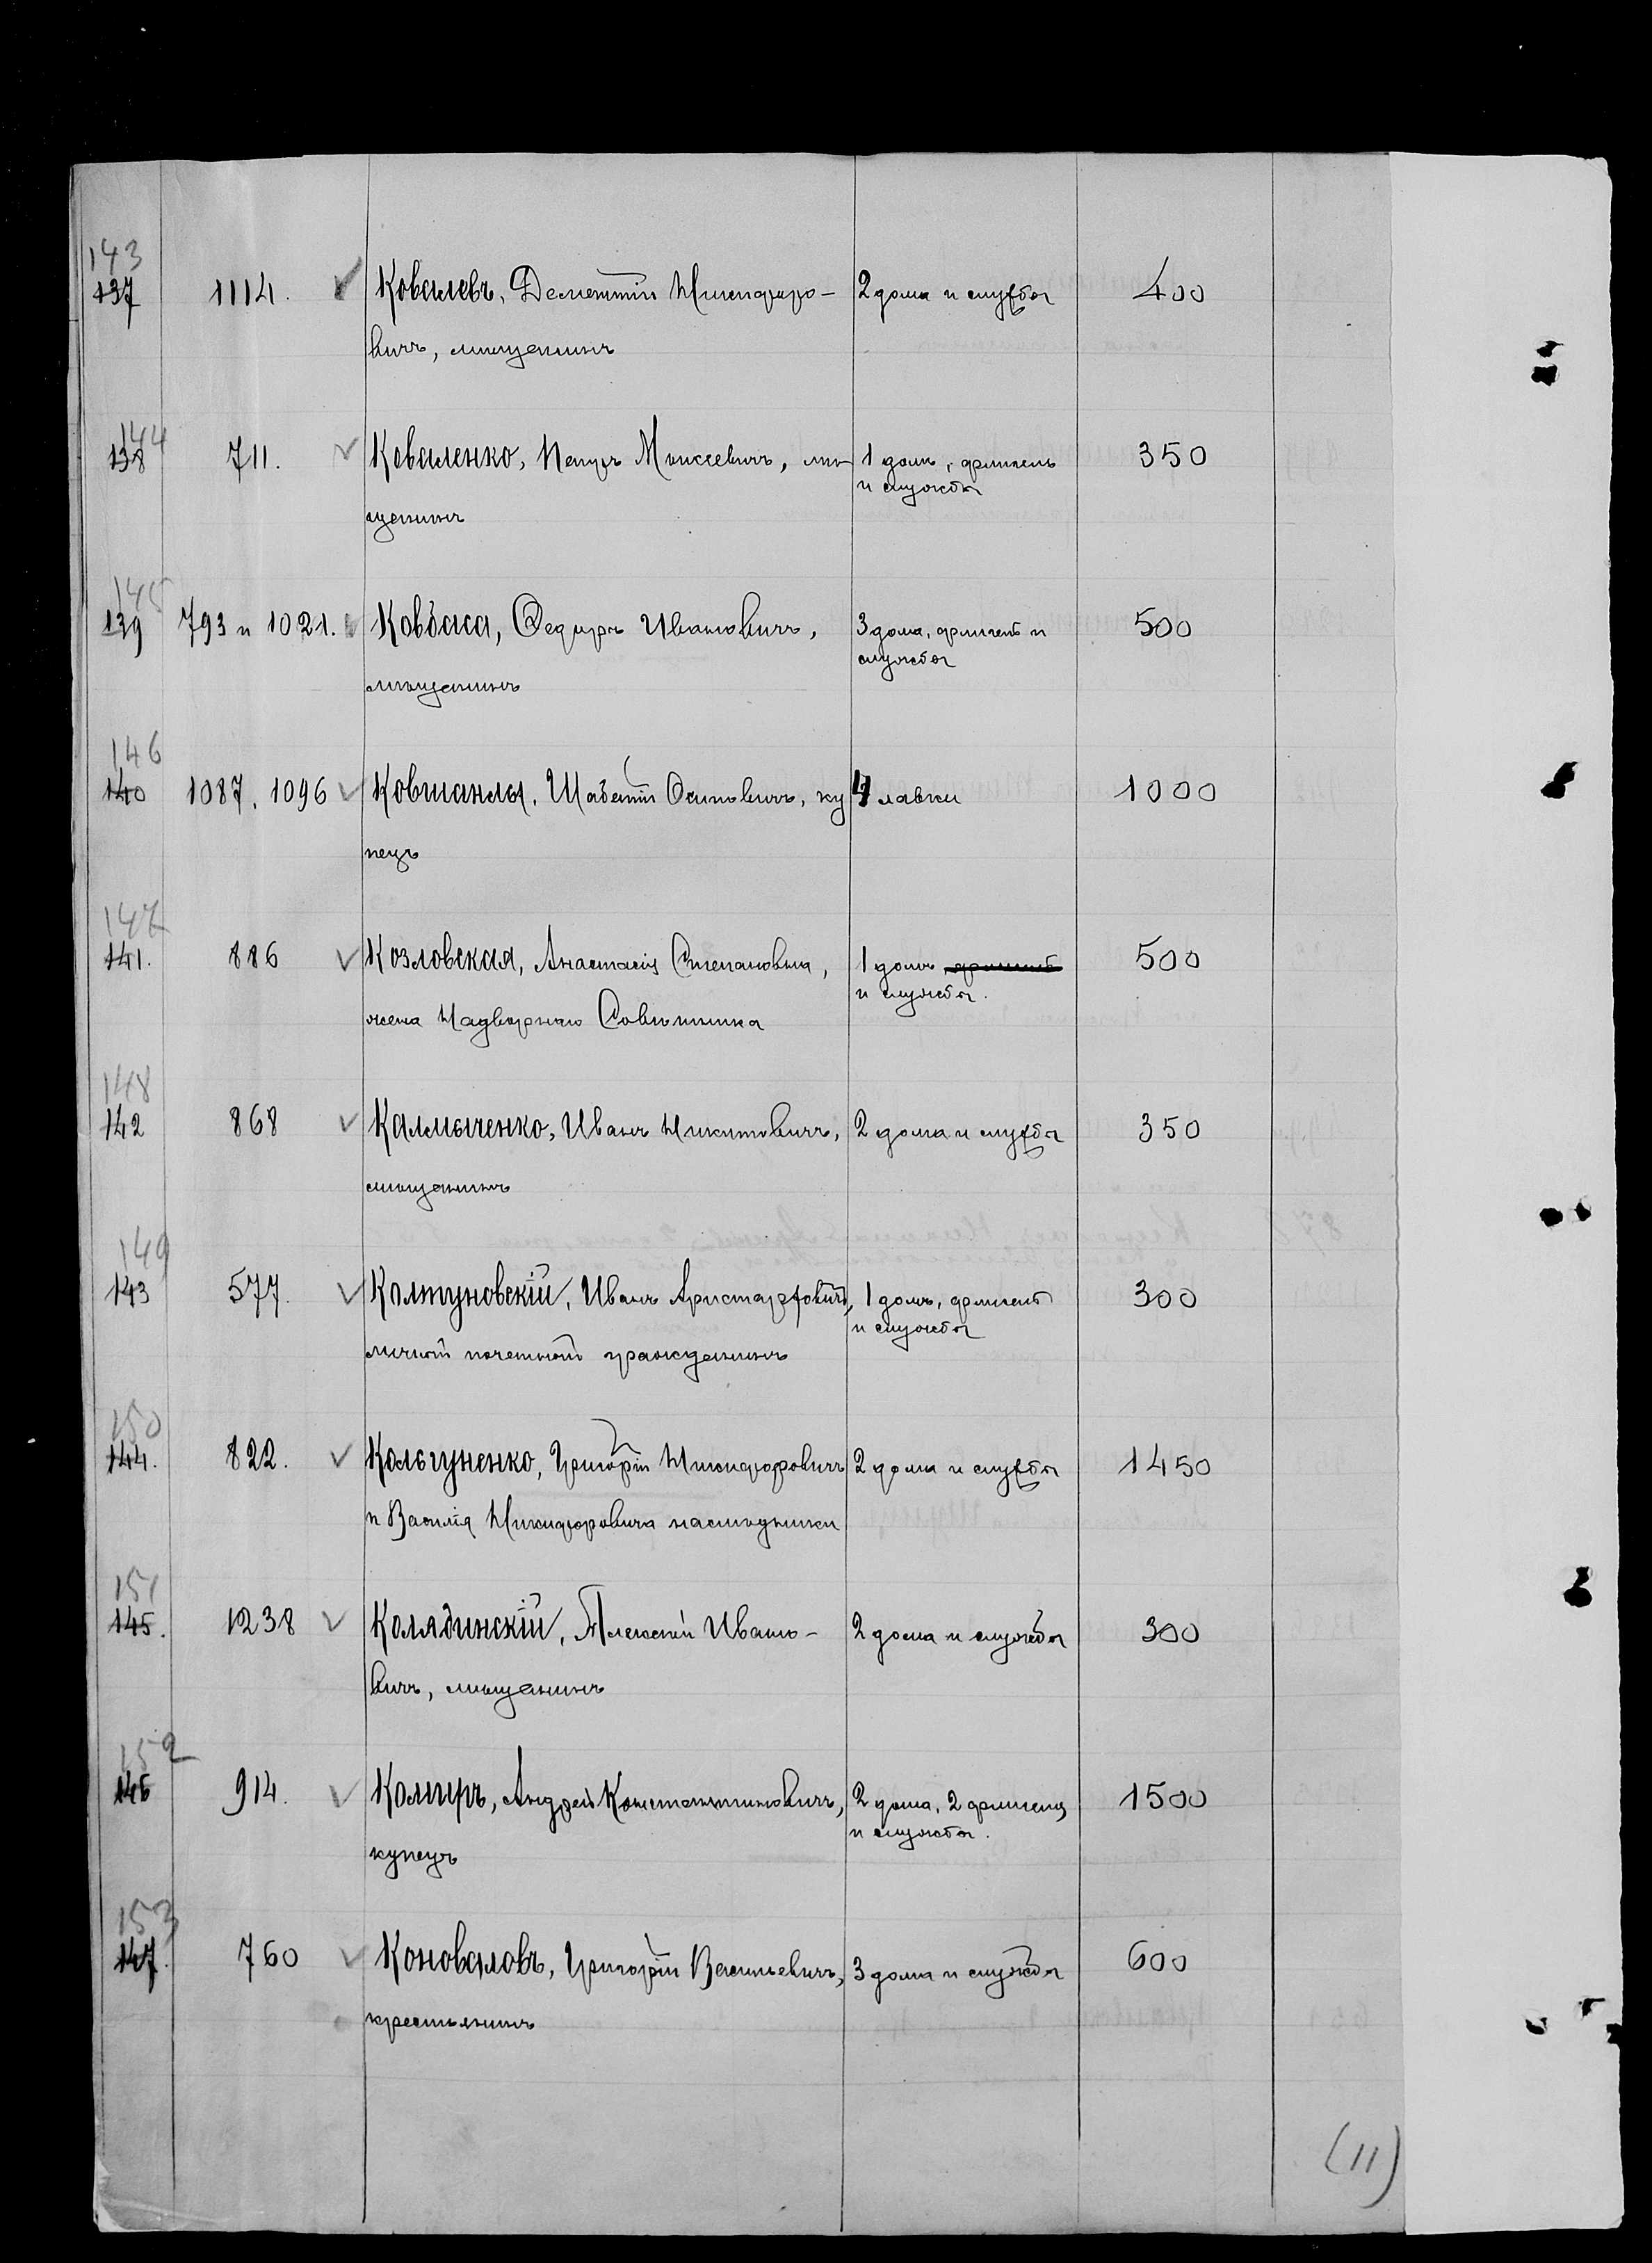 143
137 1114. Ковалевъ, Дементій Никифоро- 2 дома и службы 400
вичъ, мѣщанинъ
144
138 711. Коваленко, Петръ Моисеевичъ, мѣ 1 домъ, флигель 350
и службы
щанинъ
145
139 793 и 1021. Ковбаса, Ѳедоръ Ивановичъ, 3 дома, флигель и 500
службы
мѣщанинъ
146
140 1087. 1096 Ковшанлы, Шабетай Осиповичъ, ку 4 лавки 1000
пецъ
147
141. 886 Козловская, Анастасія Степановна, 1 домъ и службы. 500
жена Надворнаго Совѣтника
148
142 868 Калмыченко, Иванъ Никитовичъ, 2 дома и службы 350
мѣщанинъ
149
143 577. Колтуновскій, Иванъ Аристарховичъ, 1 домъ, флигель 300
и службы
личный почетный гражданинъ
150
144. 822. Григорій Никифоровичъ 2 дома и службы 1450
и Василія Никифоровича наслѣдники
151
145. 1238 Колядинскій, Алексѣй Ивано- 2 дома и службы 300
вичъ, мѣщанинъ
152
146 914. Андрей Константиновичъ, 2 дома, 2 флигеля 1500
и службы.
купецъ
153
147. 760 Коноваловъ, Григорій Васильевичъ, 3 дома и службы 600
крестьянинъ
(11)